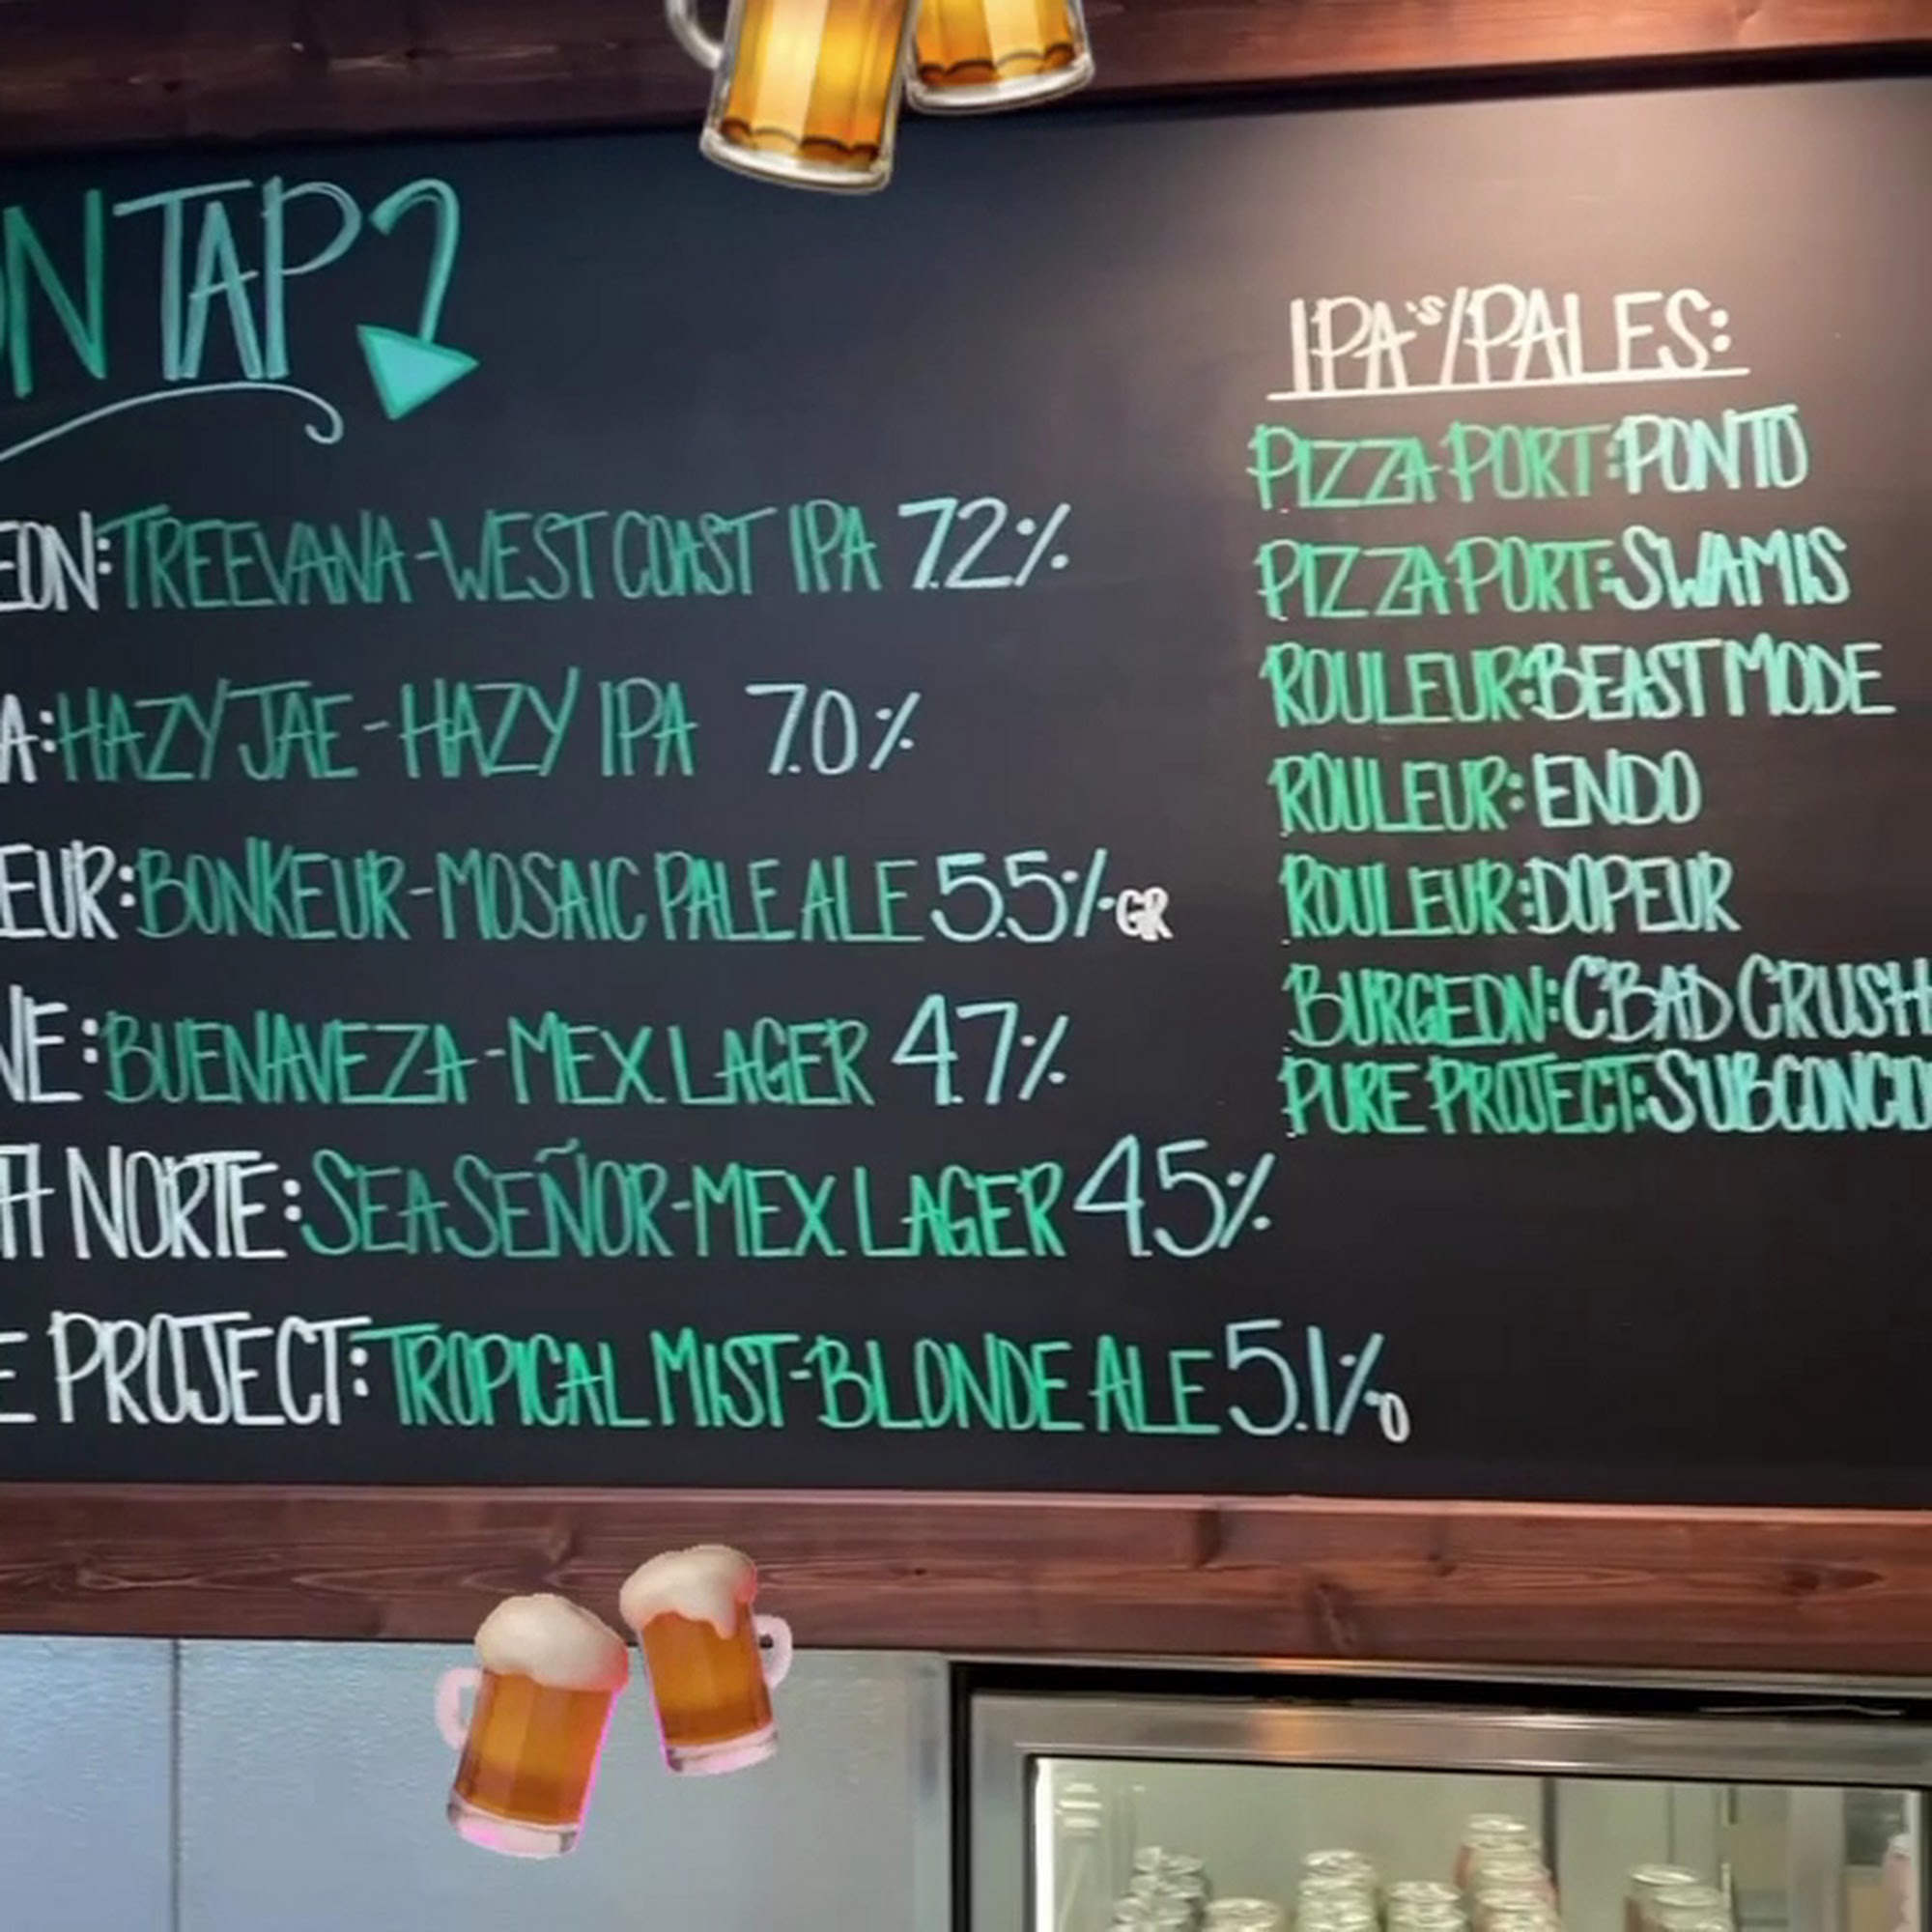 ON TAP
EON: TREEVANA - WEST COAST IPA 7.2%
A: HAZY JAE - HAZY IPA 7.0%
EUR: BONKEUR - MOSAIC PALE ALE 5.5% GR
NE: BUENAVEZA - MEX LAGER 4.7%
NORTE: SEA SEÑOR - MEX LAGER 4.5%
E PROJECT: TROPICAL MIST - BLONDE ALE 5.1%
IPA's/PALES:
PIZZA PORT: PONTO
PIZZA PORT: SWAMIS
ROULEUR: BEAST MODE
ROULEUR: ENDO
ROULEUR: DOPEUR
BURGEON: C'BAD CRUSH
PURE PROJECT: SUBCONCIO